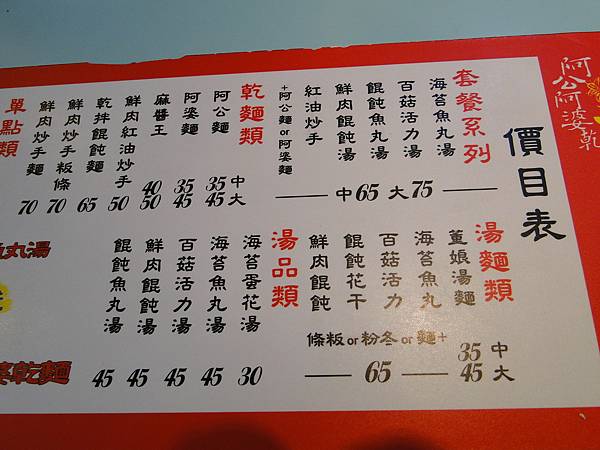 阿公阿婆乾
價目表
套餐系列
海苔魚丸湯
百菇活力湯
餛飩魚丸湯
鮮肉餛飩湯
紅油炒手
+阿公麵or阿婆麵
中65 大75
乾麵類
阿公麵 35 45
中
大
阿婆麵 35 45
麻醬王 40 50
鮮肉紅油炒手 50
乾拌餛飩麵 65
鮮肉炒手粄條 70
鮮肉炒手麵 70
單點類
湯麵類
薑娘湯麵 35 45
中
大
海苔魚丸
百菇活力
餛飩花干
鮮肉餛飩
條粄or粉冬or麵+
65
湯品類
海苔蛋花湯 30
海苔魚丸湯 45
百菇活力湯 45
鮮肉餛飩湯 45
餛飩魚丸湯 45
丸湯
乾麵